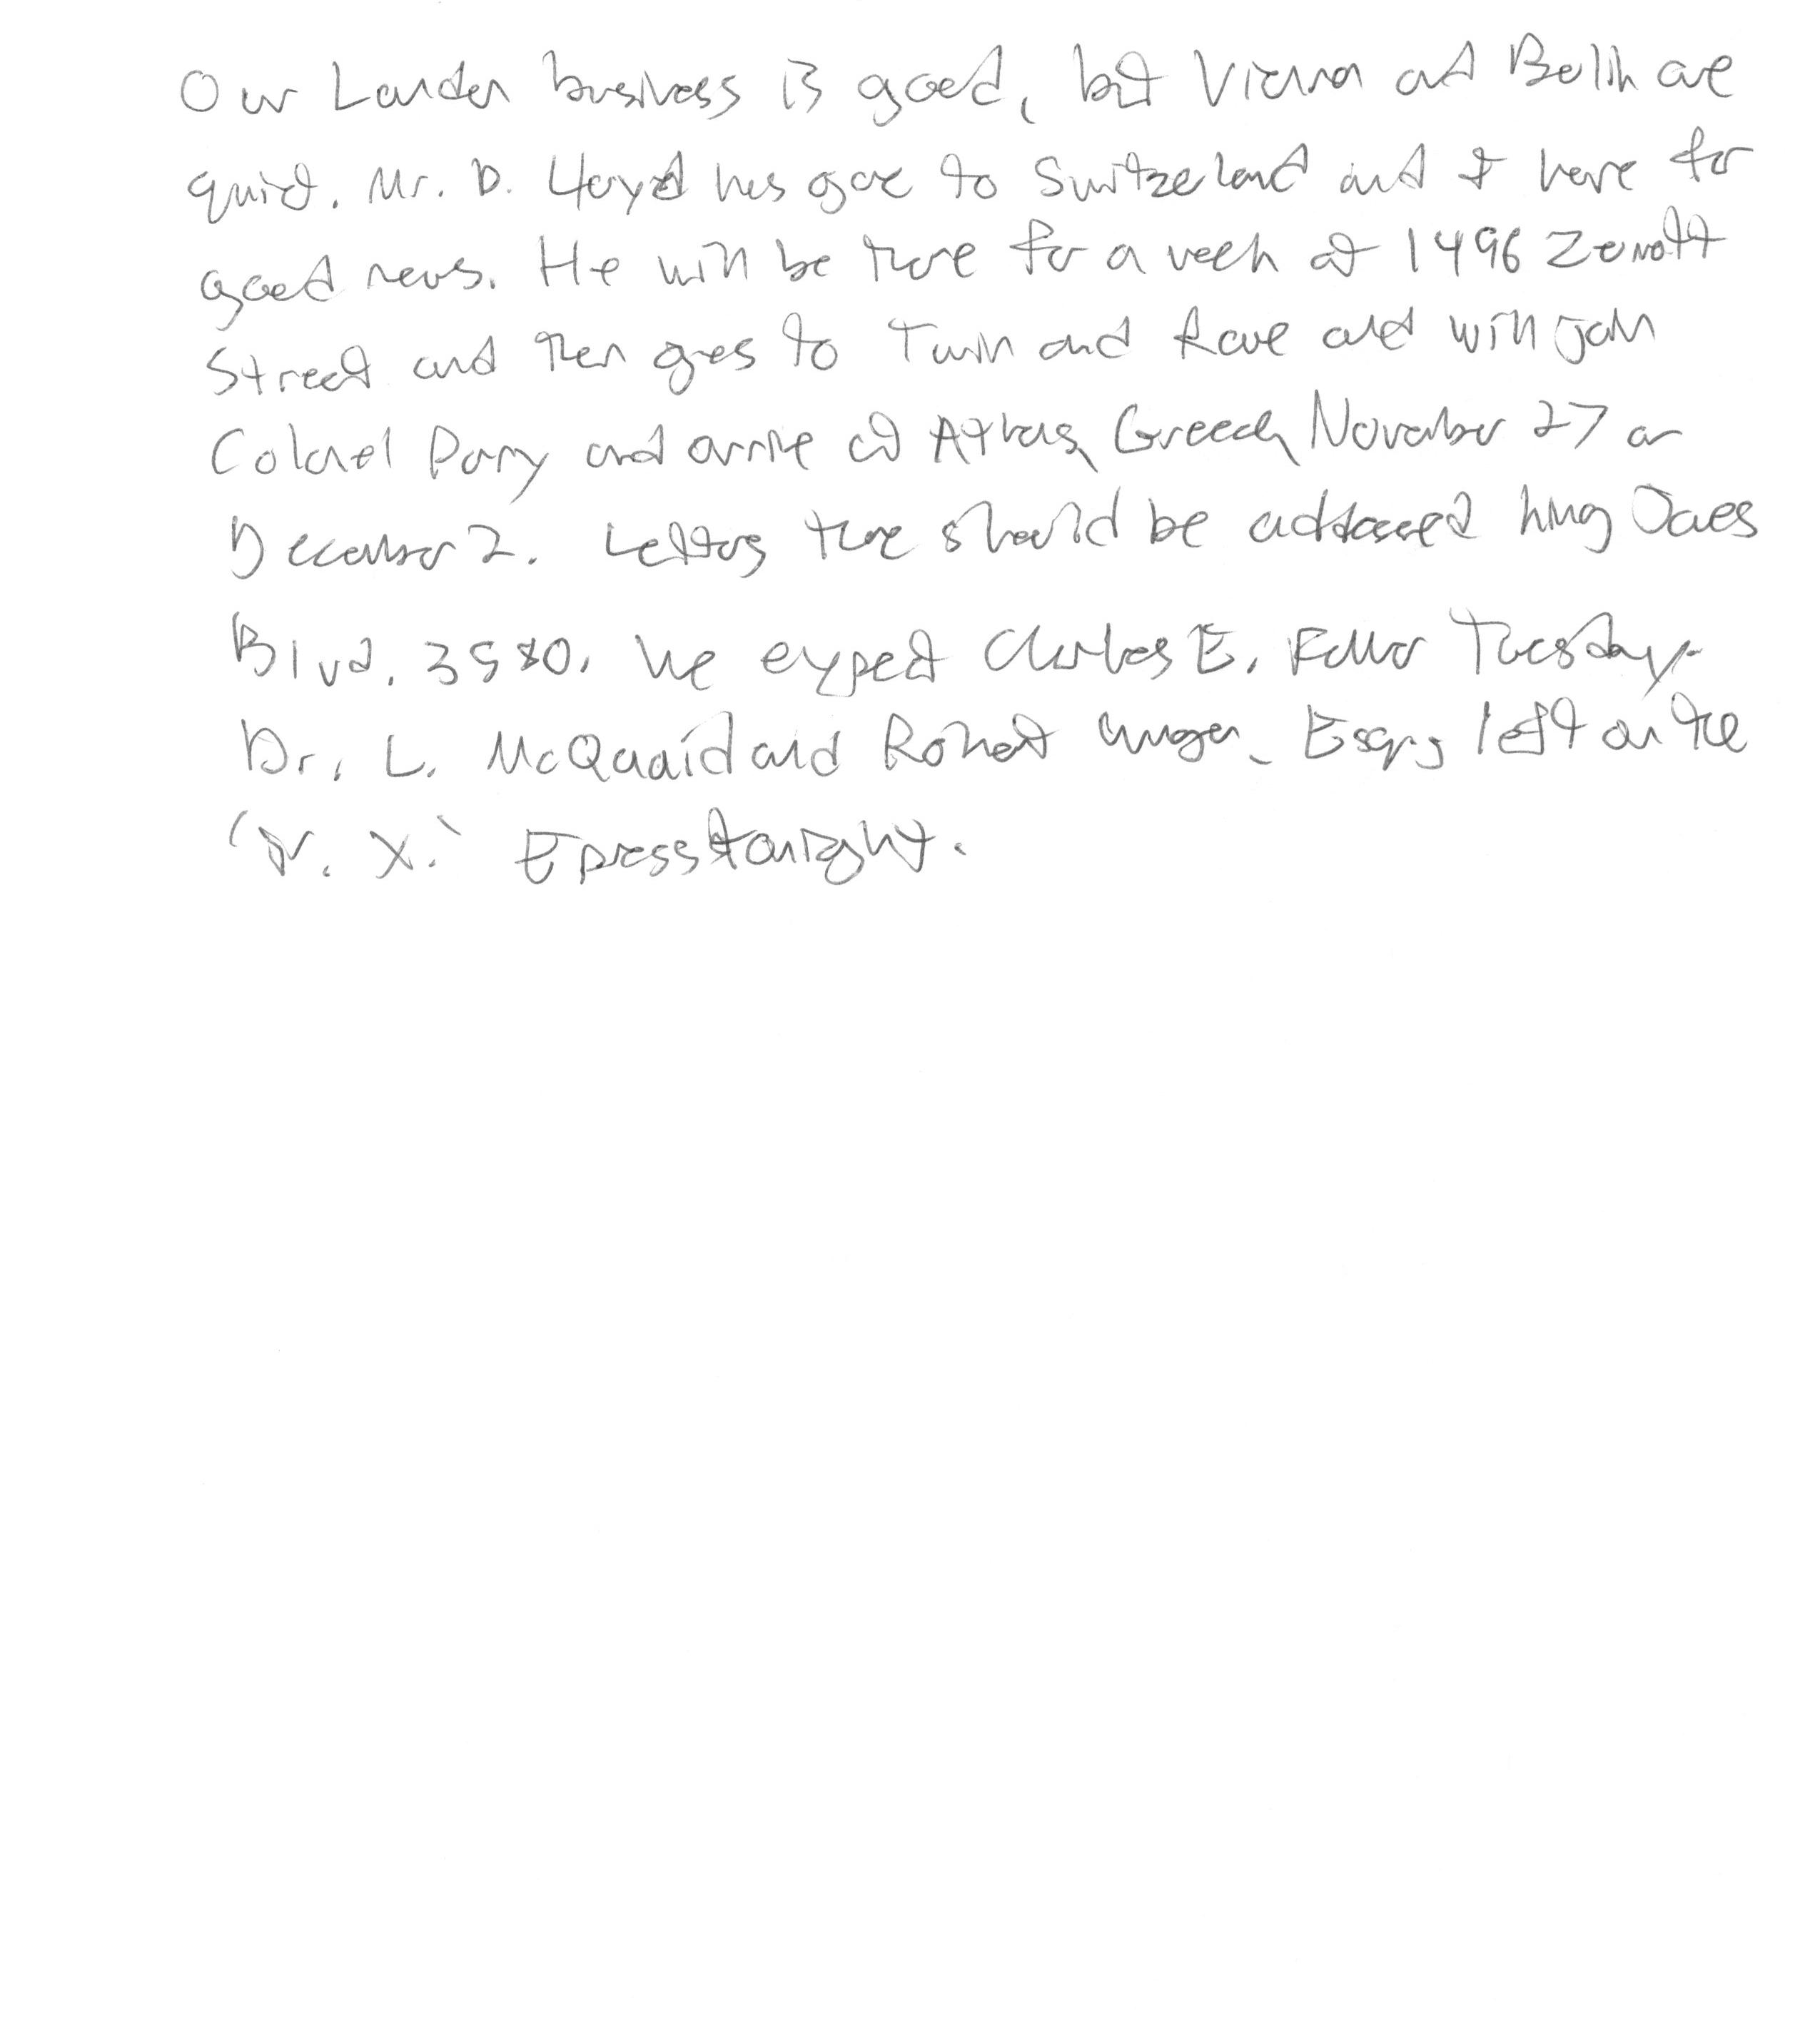 Our London business is good, but Vienna and Berlin are
quiet. Mr. D. Lloyd has gone to Switzerland and I hope for
good news. He will be there for a week at 1496 Zermott
Street and then goes to Turin and Rome and will join
Colonel Parry and arrive at Athens, Greece, November 27 or
December 2. Letters there should be addressed King James
Blvd. 3580. We expect Charles E. Fuller Tuesday.
Dr. L. McQuaid and Robert Unger, Esq., left on the
'Y. X.' Express tonight.